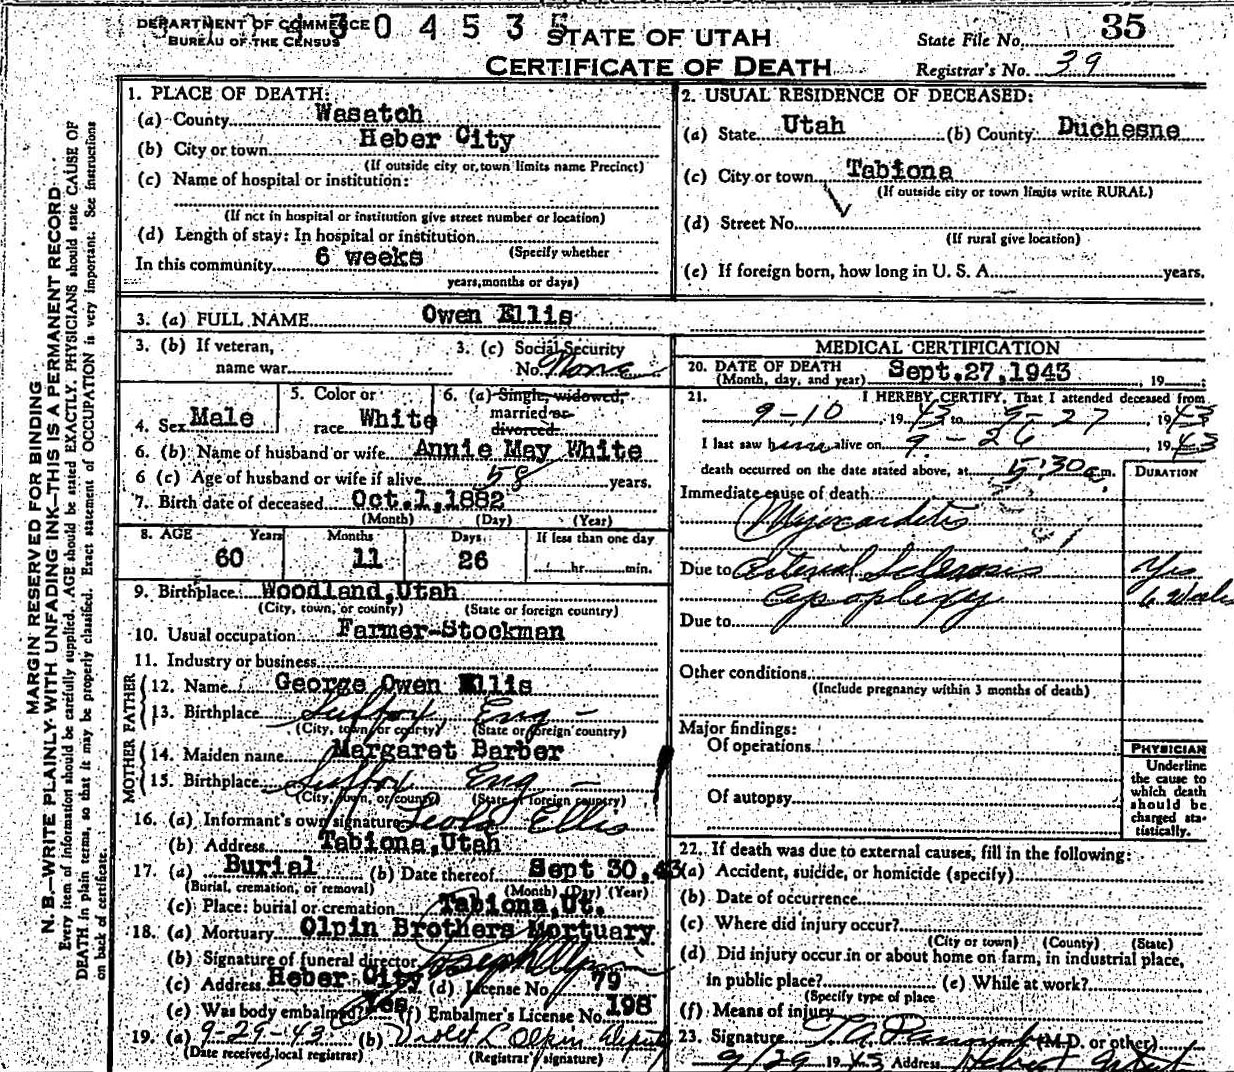 DEPARTMENT OF COMMERCE
BUREAU OF THE CENSUS
4304535
STATE OF UTAH
CERTIFICATE OF DEATH
State File No. 35
Registrar's No. 39
MARGIN RESERVED FOR BINDING
N. B.—WRITE PLAINLY WITH UNFADING INK—THIS IS A PERMANENT RECORD
Every item of information should be carefully supplied. AGE should be stated EXACTLY. PHYSICIANS should state CAUSE OF
DEATH in plain terms, so that it may be properly classified. Exact statement of OCCUPATION is very important. See instructions
on back of certificate.
1. PLACE OF DEATH:
(a) County Wasatch
(b) City or town Heber City
(If outside city or town limits name Precinct)
(c) Name of hospital or institution:
(If not in hospital or institution give street number or location)
(d) Length of stay: In hospital or institution
(Specify whether
In this community 6 weeks
years, months or days)
2. USUAL RESIDENCE OF DECEASED:
(a) State Utah (b) County Duchesne
(c) City or town Tabiona
(If outside city or town limits write RURAL)
(d) Street No.
(If rural give location)
(e) If foreign born, how long in U. S. A. years.
3. (a) FULL NAME Owen Ellis
3. (b) If veteran, name war
3. (c) Social Security No. None
4. Sex Male
5. Color or race White
6. (a) Single, widowed, married or divorced.
6. (b) Name of husband or wife Annie May White
6 (c) Age of husband or wife if alive 58 years.
7. Birth date of deceased Oct.1,1882
(Month) (Day) (Year)
8. AGE Years Months Days If less than one day
60 11 26 hr. min.
9. Birthplace Woodland,Utah
(City, town, or county) (State or foreign country)
10. Usual occupation Farmer-Stockman
11. Industry or business
FATHER
12. Name George Owen Ellis
13. Birthplace Suffox, Eng -
(City, town or county) (State or foreign country)
MOTHER
14. Maiden name Margaret Barber
15. Birthplace Suffox Eng -
(City, town, or county) (State or foreign country)
16. (a) Informant's own signature Leola Ellis
(b) Address Tabiona,Utah
17. (a) Burial (b) Date thereof Sept 30,43
(Burial, cremation, or removal) (Month) (Day) (Year)
(c) Place: burial or cremation Tabiona,Ut.
18. (a) Mortuary Olpin Brothers Mortuary
(b) Signature of funeral director Joseph Olpin
(c) Address Heber City (d) License No. 79
(e) Was body embalmed? Yes (f) Embalmer's License No. 198
19. (a) 9-29-43 (b) Violet L Olpin Deputy
(Date received local registrar) (Registrar's signature)
MEDICAL CERTIFICATION
20. DATE OF DEATH
(Month, day, and year) Sept.27,1943, 19
21. I HEREBY CERTIFY, That I attended deceased from
9-10, 1943 to 9-27, 1943
I last saw him alive on 9-26 1943
death occurred on the date stated above, at 5:30 a.m.
DURATION
Immediate cause of death
Myocarditis
Due to Arterial Sclerosis Yrs
Apoplexy 6 Weeks
Due to
Other conditions
(Include pregnancy within 3 months of death)
Major findings:
Of operations
Of autopsy
PHYSICIAN
Underline
the cause to
which death
should be
charged sta-
tistically.
22. If death was due to external causes, fill in the following:
(a) Accident, suicide, or homicide (specify)
(b) Date of occurrence
(c) Where did injury occur?
(City or town) (County) (State)
(d) Did injury occur in or about home on farm, in industrial place,
in public place? (e) While at work?
(Specify type of place
(f) Means of injury
23. Signature (M.D. or other)
9/29 1943 Address Heber Utah